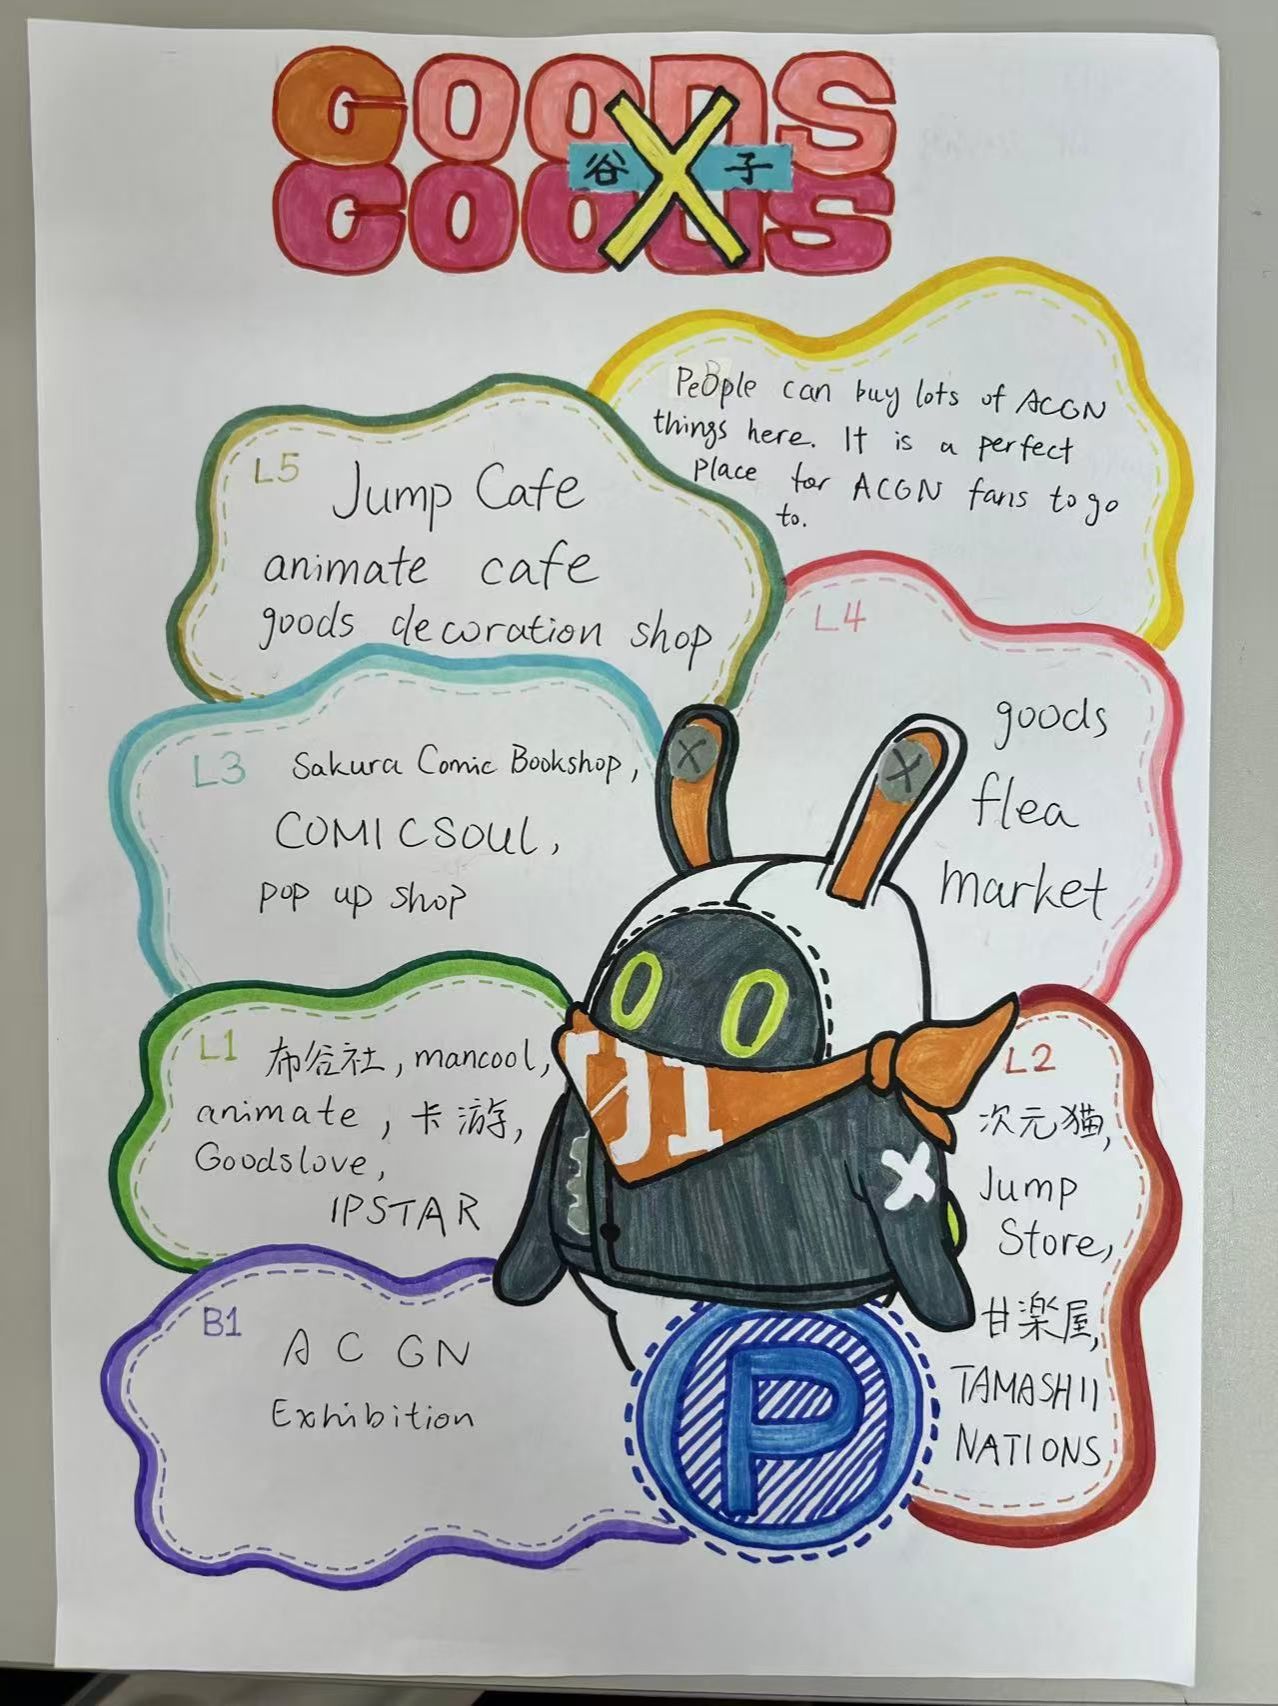 GOODS
谷 X 子
GOODS
People can buy lots of ACGN
things here. It is a perfect
place for ACGN fans to go
to.
L5 Jump Cafe
animate cafe
goods decoration shop
L4
goods
flea
market
L3 Sakura Comic Bookshop,
COMICSOUL,
pop up shop
L1 布谷社, mancool,
animate, 卡游,
Goodslove,
IPSTAR
L2
次元猫,
Jump
Store,
甘楽屋,
TAMASHII
NATIONS
B1
ACGN
Exhibition
P